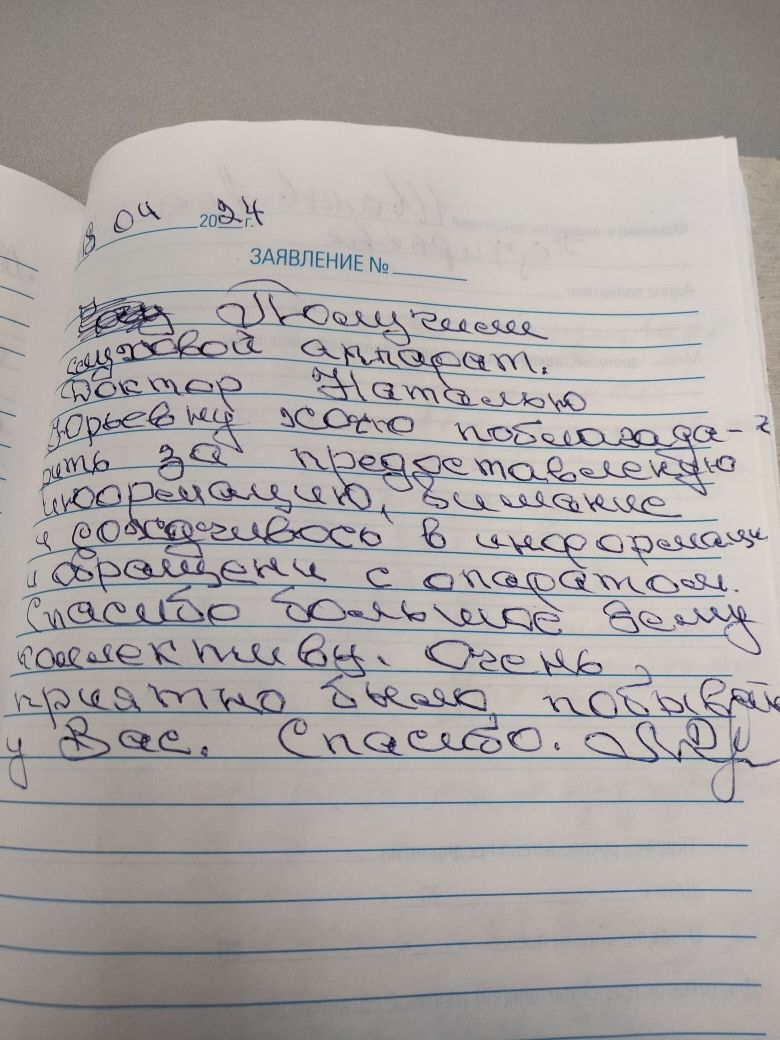 18 04 2024 г.
ЗАЯВЛЕНИЕ №
Получили
слуховой аппарат.
Доктор Наталью
Юрьевну хочю поблагада-
рить за предоставленую
информацию, внимание
и
в информаци
и обращени с опаратом.
Спасибо большое всему
коллективу. Очень
приятно было побывать
у Вас. Спасибо.